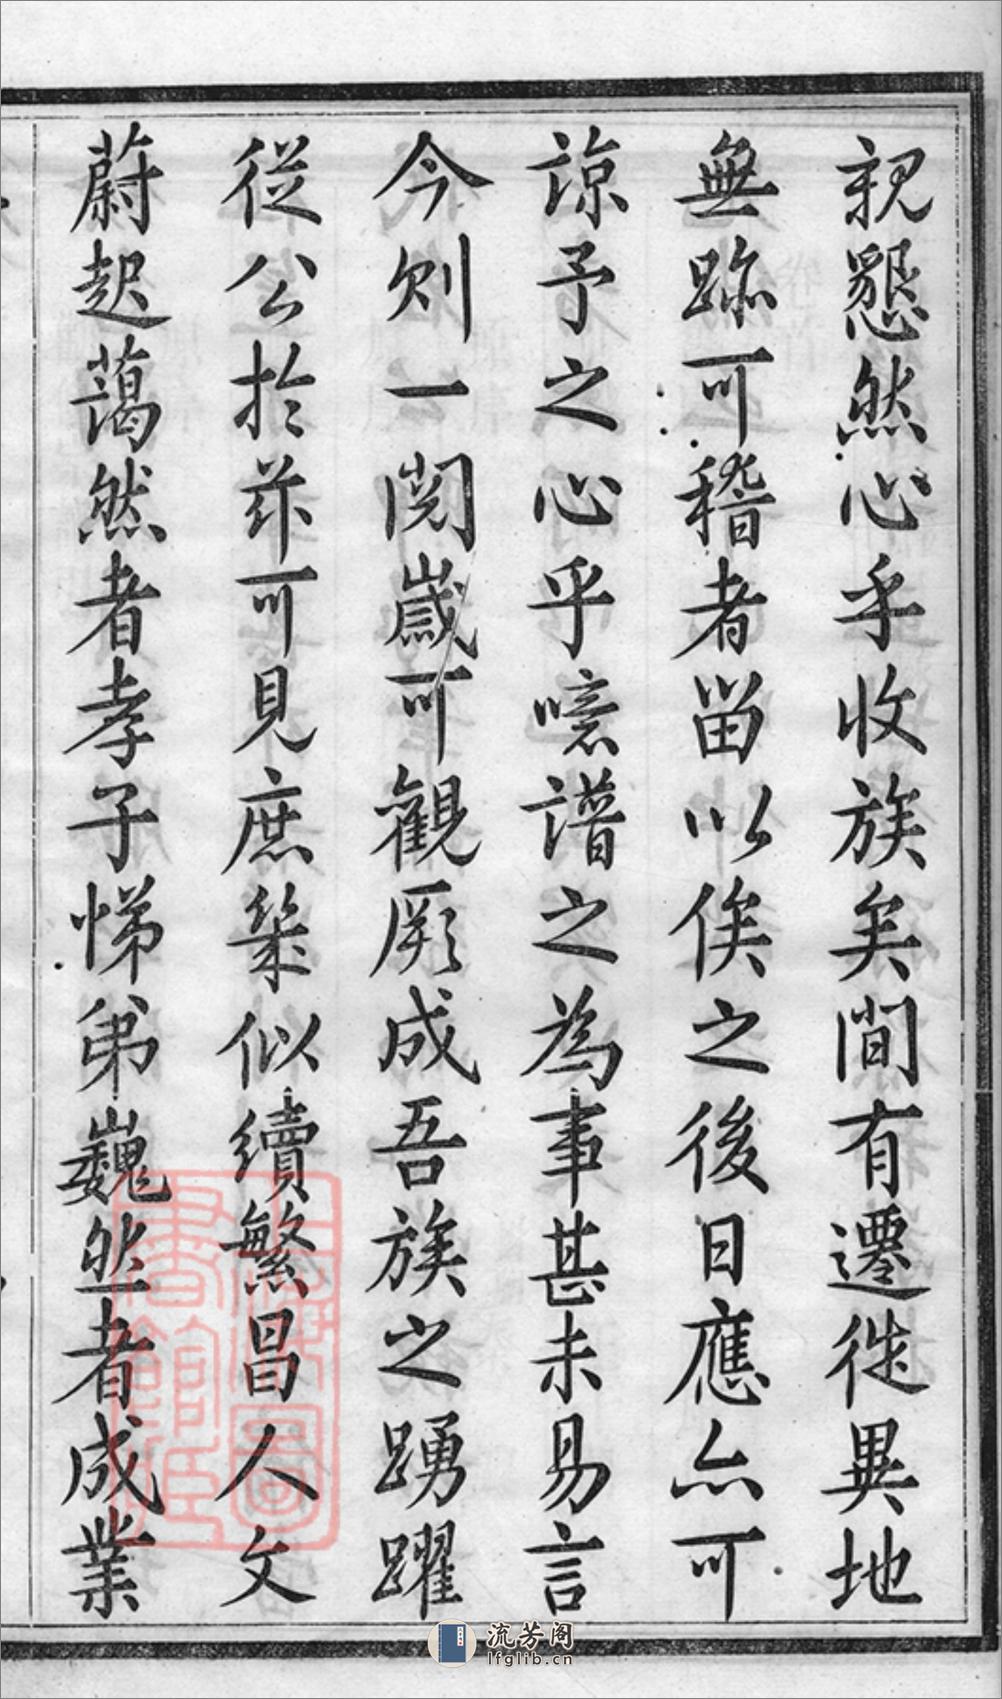 親懇然心乎收族矣間有遷徙異地
無跡可稽者留以俟之後日應亦可
諒予之心乎噫譜之為事甚未易言
今則一閱歲可觀厥成吾族之踴躍
從公於茲可見庶幾似續繁昌人文
蔚起藹然者孝子悌弟巍然者成業
上海圖書館藏
流芳阁
lfglib.cn